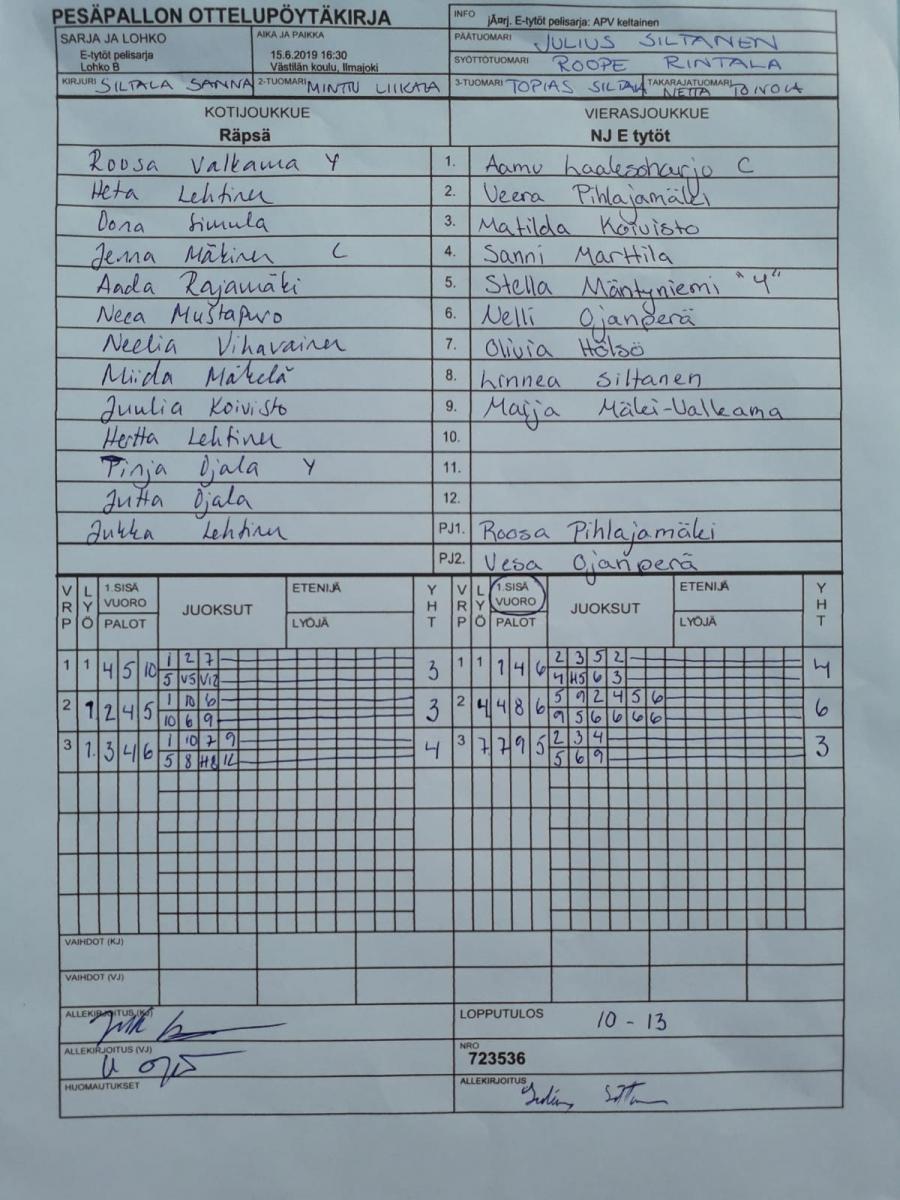 PESÄPALLON OTTELUPÖYTÄKIRJA
INFO jÃ¤rj. E-tytöt pelisarja: APV keltainen
SARJA JA LOHKO
E-tytöt pelisarja
Lohko B
AIKA JA PAIKKA
15.6.2019 16:30
Västilän koulu, Ilmajoki
PÄÄTUOMARI JULIUS SILTANEN
SYÖTTÖTUOMARI ROOPE RINTALA
KIRJURI SILTALA SANNA 2-TUOMARI MINTTU LIIKALA 3-TUOMARI TOPIAS TAKARAJATUOMARI NETTA
KOTIJOUKKUE VIERASJOUKKUE
Räpsä NJ E tytöt
Roosa Valkama Y 1. Aamu C
Heta Lehtinen 2. Veera Pihlajamäki
Simula 3. Matilda Koivisto
Jenna Mäkinen C 4. Sanni Marttila
Aada Rajamäki 5. Stella Mäntyniemi "Y"
Neea Mustapuro 6. Nelli Ojanperä
Neelia Vihavainen 7. Olivia Hölsö
Miida Mäkelä 8. Linnea Siltanen
Juulia Koivisto 9. Maija Mäki-Valkama
Hertta Lehtinen 10.
Pinja Ojala Y 11.
Jutta Ojala 12.
Jukka Lehtinen PJ1. Roosa Pihlajamäki
PJ2. Vesa Ojanperä
VRP LYÖ 1.SISÄ VUORO PALOT JUOKSUT ETENIJÄ LYÖJÄ YHT VRP LYÖ 1.SISÄ VUORO PALOT JUOKSUT ETENIJÄ LYÖJÄ YHT
1 1 4 5 10 1 2 7 3 1 1 1 4 6 2 3 5 2 4
5 V5 V12 4 H5 6 3
2 1. 2 4 5 1 10 6 3 2 4 4 8 6 5 9 2 4 5 6 6
10 6 9 9 5 6 6 6 6
3 1. 3 4 6 1 10 7 9 4 3 7 7 9 5 2 3 4 3
5 8 H8 12 5 6 9
VAIHDOT (KJ)
VAIHDOT (VJ)
ALLEKIRJOITUS (KJ) LOPPUTULOS 10 - 13
ALLEKIRJOITUS (VJ) NRO
723536
HUOMAUTUKSET ALLEKIRJOITUS